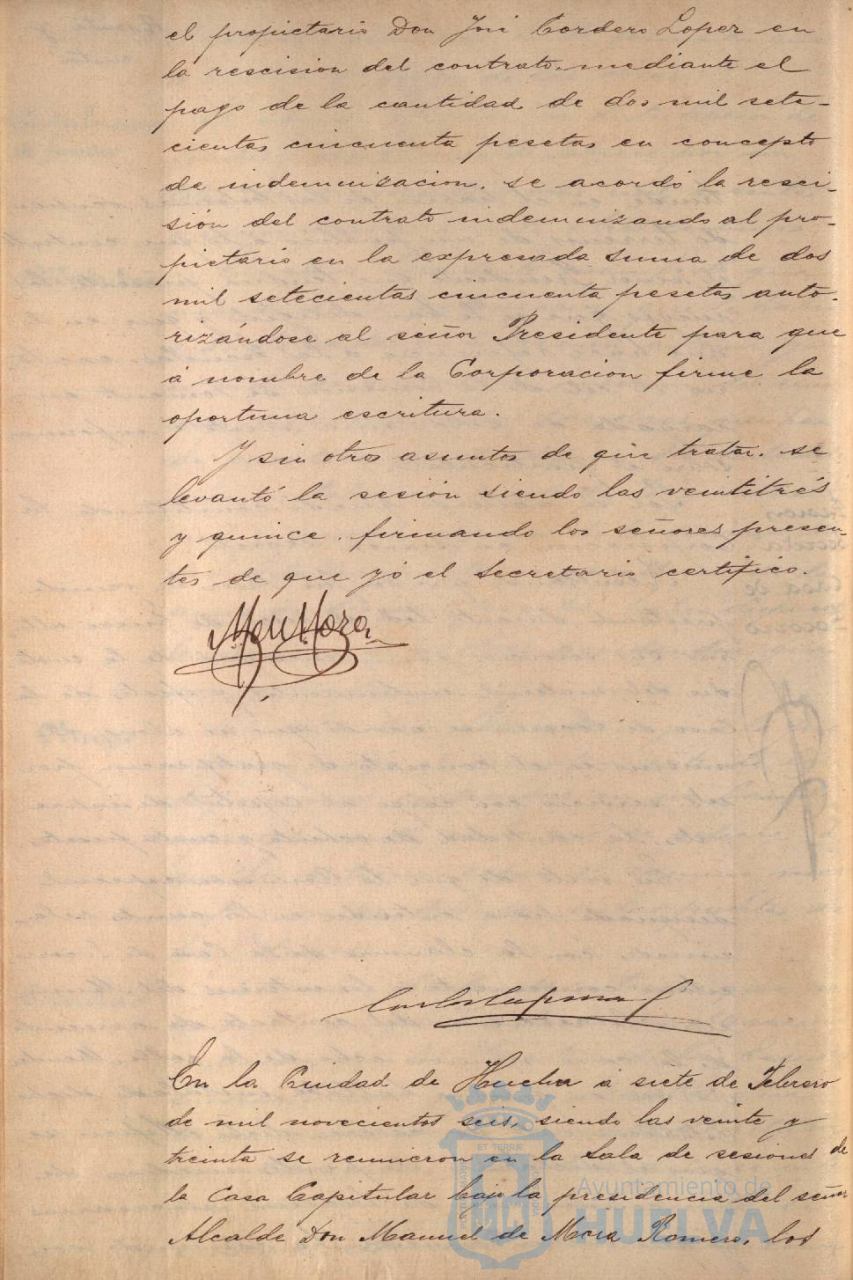 el propietario Don José Cordero Lopez en
la rescision del contrato. mediante el
pago de la cantidad de dos mil sete-
cientas cincuenta pesetas en concepto
de indemnizacion. se acordó la resci-
sión del contrato indemnizando al pro-
pietario en la expresada suma de dos
mil setecientas cincuenta pesetas auto-
rizándose al señor Presidente para que
á nombre de la Corporacion firme la
oportuna escritura.
Y sin otros asuntos de que tratar. se
levantó la sesión siendo las veintitrés
y quince. firmando los señores presen-
tes de que yó el Secretario certifico.
En la Ciudad de Huelva á siete de Febrero
de mil novecientos seis, siendo las veinte y
treinta se reunieron en la Sala de sesiones de
la Casa Capitular bajo la presidencia del señor
Alcalde Don Manuel de Mora Romero, los
Ayuntamiento de
HUELVA